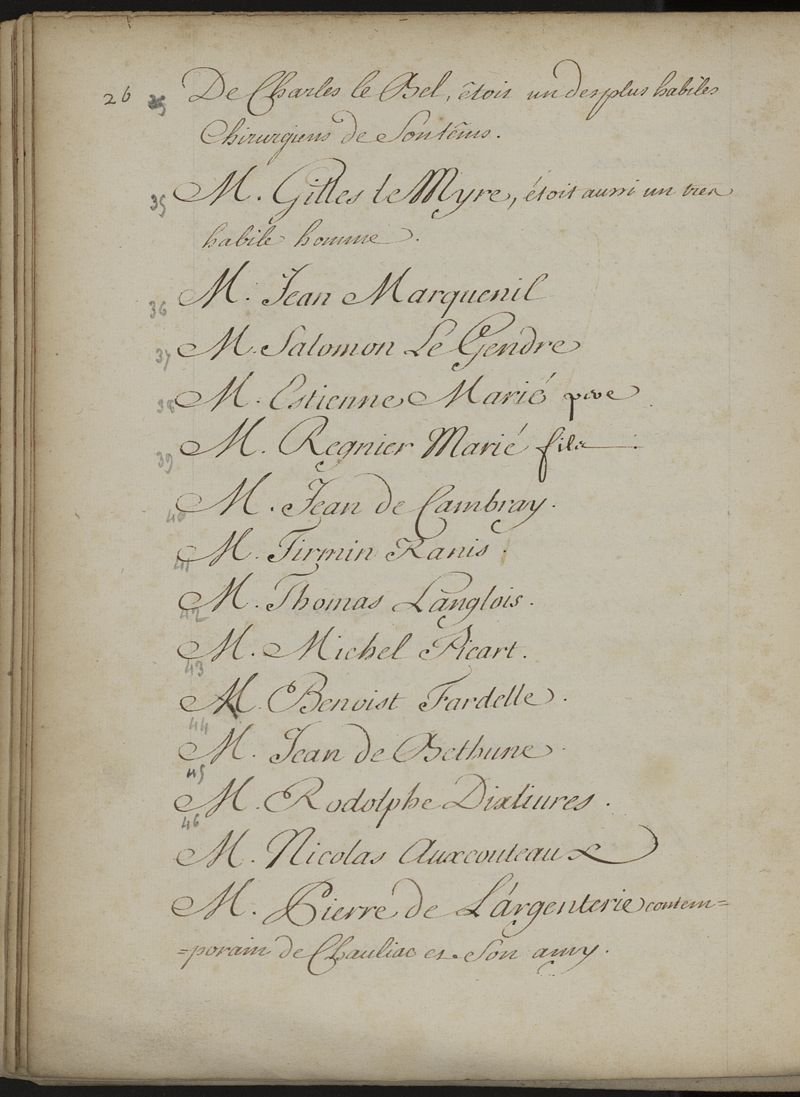 26 35 De Charles le Bel, êtoit un des plus habiles
Chirurgiens de Son têms.
35 M. Gilles le Myre, étoit aussi un tres
habile homme.
36 M. Jean Marquenil
37 M. Salomon Le Gendre
38 M. Estienne Marié pere
39 M. Regnier Marié fils.
40 M. Jean de Cambray.
41 M. Firmin Ranis.
42 M. Thomas Langlois.
M. Michel Picart.
43
M. Benoist Fardelle.
44
M. Jean de Bethune.
45
M. Rodolphe Dixliures.
46
M. Nicolas Auxcouteaux
M. Pierre de L'argenterie contem=
=porain de Chauliac et Son amy.